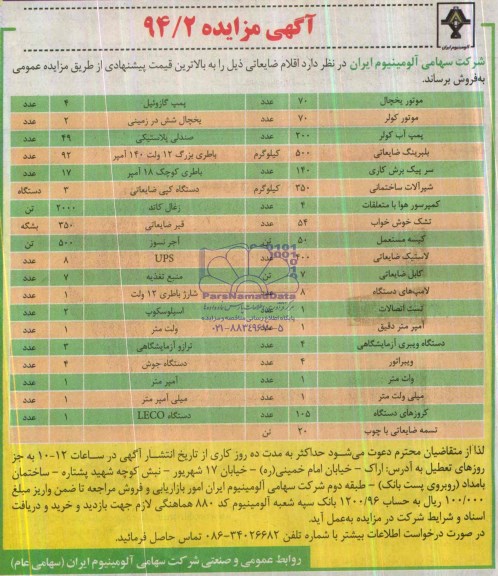 آگهی مزایده ۹۴/۲
آلومینیوم ایران
شرکت سهامی آلومینیوم ایران در نظر دارد اقلام ضایعاتی ذیل را به بالاترین قیمت پیشنهادی از طریق مزایده عمومی
به‌فروش برساند.
موتور یخچال ۷۰ عدد پمپ گازوئیل ۴ عدد
موتور کولر ۷۰ عدد یخچال شش در زمینی ۲ عدد
پمپ آب کولر ۲۰۰ عدد صندلی پلاستیکی ۴۹ عدد
بلبرینگ ضایعاتی ۵۰۰ کیلوگرم باطری بزرگ ۱۲ ولت ۱۴۰ آمپر ۹۲ عدد
سر پیک برش کاری ۱۴۰ عدد باطری کوچک ۱۸ آمپر ۱۷ عدد
شیرآلات ساختمانی ۲۵۰ کیلوگرم دستگاه کپی ضایعاتی ۳ دستگاه
کمپرسور هوا با متعلقات ۴ عدد زغال کاتد ۲۰۰۰ تن
تشک خوش خواب ۵۴ عدد قیر ضایعاتی ۳۵۰ بشکه
کیسه مستعمل ۵۰ آجر نسوز ۵۰۰ تن
لاستیک ضایعاتی ۴۰۰ UPS ۸ عدد
کابل ضایعاتی ۷ تن منبع تغذیه ۷ عدد
لامپ‌های دستگاه ۸ شارژ باطری ۱۲ ولت ۱ عدد
تست اتصالات ۱ اسیلوسکوپ ۲ عدد
آمپر متر دقیق ۱ عدد ولت متر ۱ عدد
دستگاه ویبری آزمایشگاهی ۴ عدد ترازو آزمایشگاهی ۳ عدد
ویبراتور ۴ عدد دستگاه جوش ۴ عدد
وات متر ۱ عدد آمپر متر ۱ عدد
میلی ولت متر ۱ عدد میلی آمپر متر ۱ عدد
کروزهای دستگاه ۱۰۵ عدد دستگاه LECO ۱ عدد
تسمه ضایعاتی با چوب ۲۰ تن
ParsNamadData
۰۲۱-۸۸۳۴۹۶۷۰-۵
لذا از متقاضیان محترم دعوت می‌شود حداکثر به مدت ده روز کاری از تاریخ انتشار آگهی در ساعات ۱۲-۱۰ به جز
روزهای تعطیل به آدرس: اراک – خیابان امام خمینی(ره) – خیابان ۱۷ شهریور – نبش کوچه شهید پشتاره – ساختمان
بامداد (روبروی پست بانک) – طبقه دوم شرکت سهامی آلومینیوم ایران امور بازاریابی و فروش مراجعه تا ضمن واریز مبلغ
۱۰۰/۰۰۰ ریال به حساب ۱۲۰۰/۹۶ بانک سپه شعبه آلومینیوم کد ۸۸۰ هماهنگی لازم جهت بازدید و خرید و دریافت
اسناد و شرایط شرکت در مزایده به‌عمل آید.
در صورت درخواست اطلاعات بیشتر با شماره تلفن ۳۴۰۲۶۶۸۲-۰۸۶ تماس حاصل فرمائید.
روابط عمومی و صنعتی شرکت سهامی آلومینیوم ایران (سهامی عام)